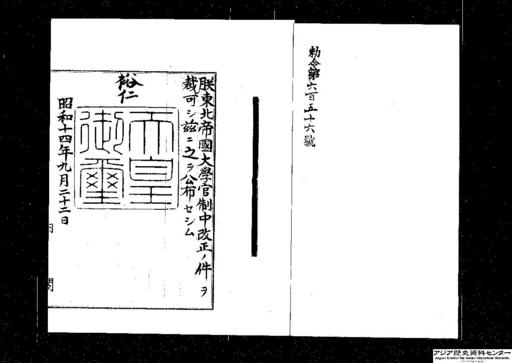 勅令第六百五十六號
朕東北帝國大學官制中改正ノ件ヲ
裁可シ茲ニ之ヲ公布セシム
裕仁
天皇
御璽
昭和十四年九月二十二日
アジア歴史資料センター
Japan Center for Asian Historical Records